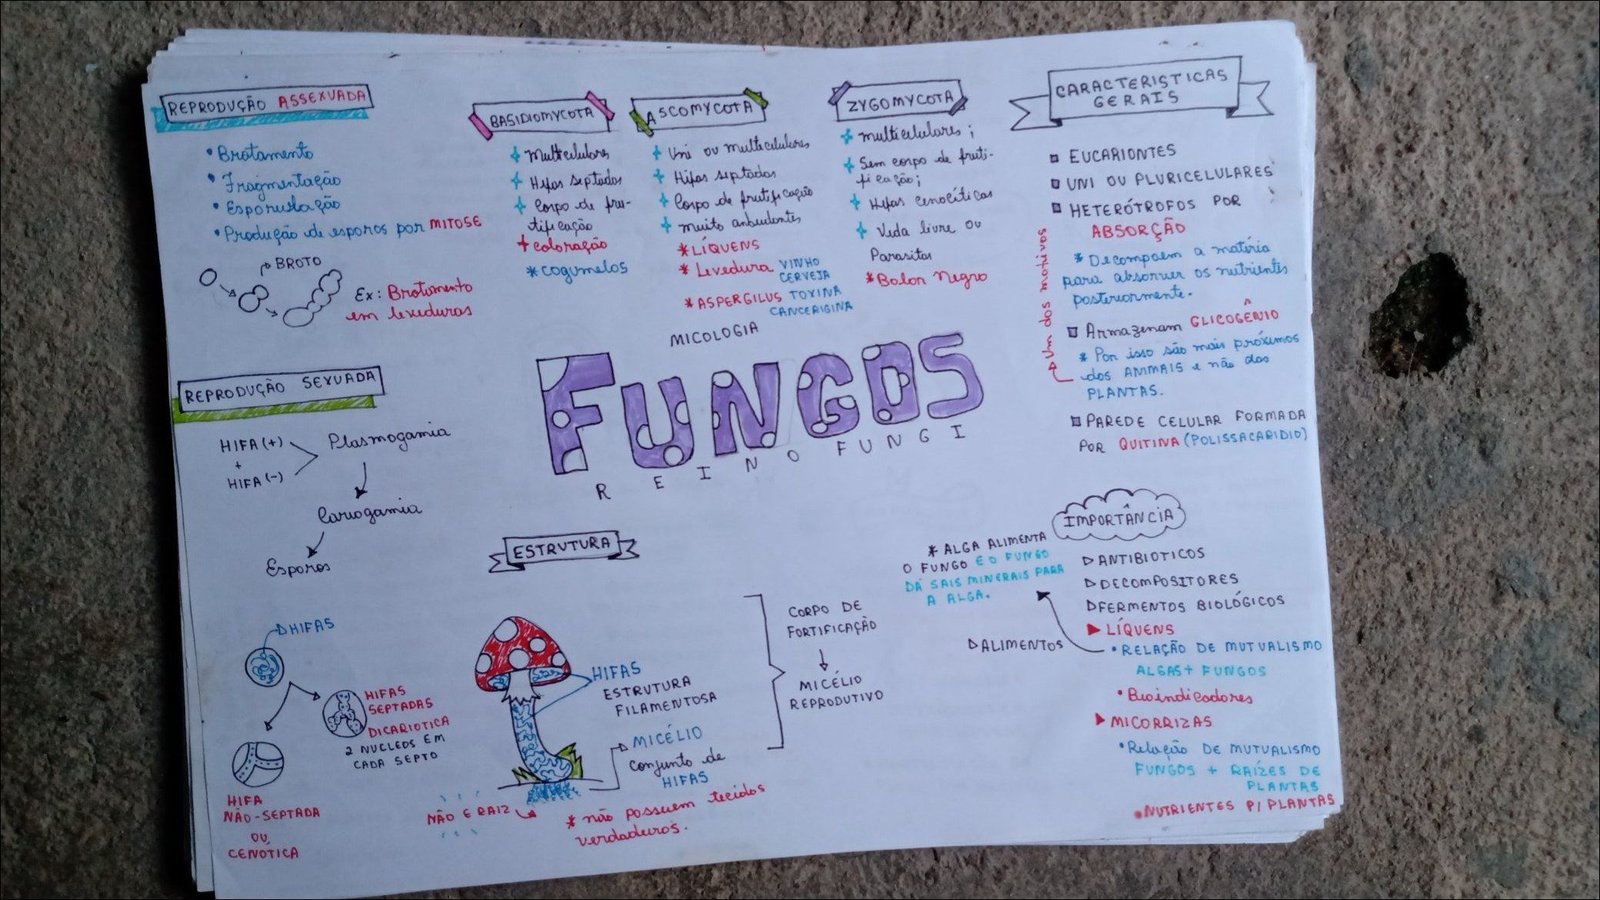 REPRODUÇÃO ASSEXUADA
• Brotamento
• Fragmentação
• Esporulação
• Produção de esporos por MITOSE
BROTO
Ex: Brotamento
em leveduras
BASIDIOMYCOTA
+ Multicelulares
+ Hifas septadas
+ Corpo de fru-
tificação
+ coloração
* COGUMELOS
ASCOMYCOTA
+ Uni ou multicelulares
+ Hifas septadas
+ Corpo de frutificação
+ muito abundantes
* LÍQUENS
* Levedura VINHO
CERVEJA
* ASPERGILUS TOXINA
CANCERIGINA
ZYGOMYCOTA
+ multicelulares;
+ Sem corpo de fruti-
ficação;
+ Hifas cenocíticas
+ Vida livre ou
Parasitas
* Bolor Negro
CARACTERISTICAS
GERAIS
EUCARIONTES
UNI OU PLURICELULARES
HETERÓTROFOS POR
ABSORÇÃO
* Decompoem a matéria
para absorver os nutrientes
posteriormente.
Armazenam GLICOGÊNIO
* Por isso são mais próximos
dos ANIMAIS e não das
PLANTAS.
Um dos motivos
PAREDE CELULAR FORMADA
POR QUITINA (POLISSACARIDIO)
MICOLOGIA
FUNGOS
REINO FUNGI
REPRODUÇÃO SEXUADA
HIFA (+)
+
HIFA (-)
Plasmogamia
Cariogamia
Esporos
HIFAS
HIFAS
SEPTADAS
DICARIOTICA
2 NUCLEOS EM
CADA SEPTO
HIFA
NÃO-SEPTADA
OU
CENOTICA
ESTRUTURA
HIFAS
ESTRUTURA
FILAMENTOSA
MICÉLIO
conjunto de
HIFAS
NÃO E RAIZ
* não possuem tecidos
verdadeiros.
CORPO DE
FORTIFICAÇÃO
MICÉLIO
REPRODUTIVO
IMPORTÂNCIA
ANTIBIOTICOS
DECOMPOSITORES
FERMENTOS BIOLÓGICOS
LÍQUENS
• RELAÇÃO DE MUTUALISMO
ALGAS + FUNGOS
• Bioindicadores
MICORRIZAS
• Relação DE MUTUALISMO
FUNGOS + RAÍZES DE
PLANTAS
• NUTRIENTES P/ PLANTAS
ALIMENTOS
* ALGA ALIMENTA
O FUNGO E O FUNGO
DÁ SAIS MINERAIS PARA
A ALGA.